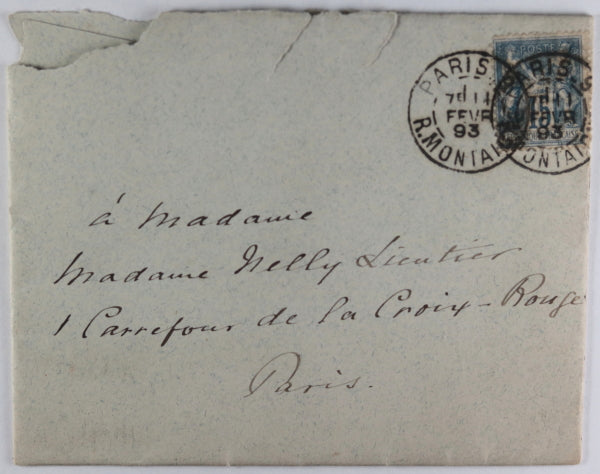 POSTE
PARIS
7E 1
FEVR
93
R. MONTAI
PARIS
7E 1
FEVR
93
MONTAI
à Madame
Madame Nelly Lieutier
1 Carrefour de la Croix-Rouge
Paris.